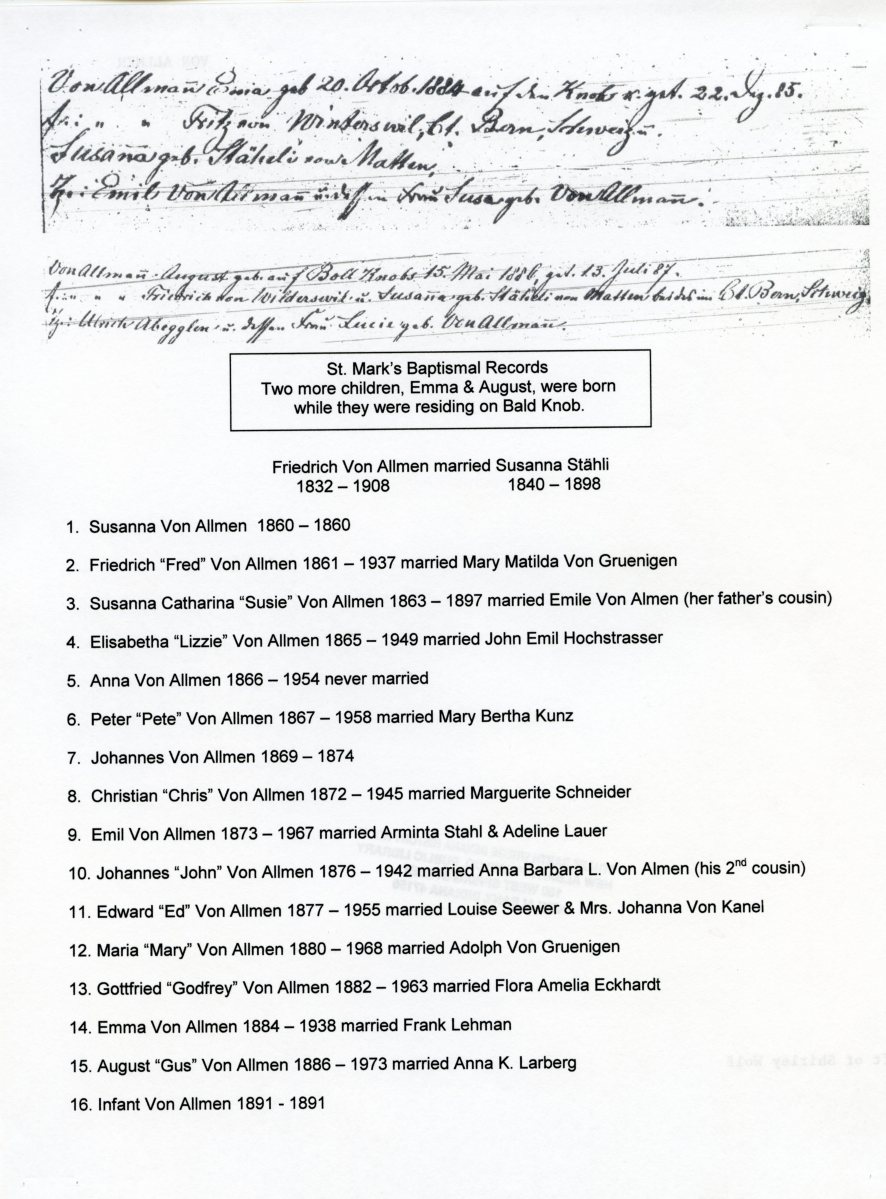 Von Allmañ Emia geb 20. Octob. 1884 auf den Knobs u. get. 22. Dez. 85.
" " Fritz von Winterswil, Ct. Bern, Schweiz u.
Susaña geb. Stäheli von Matten,
Emil Von Allmañ u. dessen Frau Susa geb. Von Allmañ.
Von Allmañ August geb. auf Boll Knobs 15. Mai 1886, get. 13. Juli 87.
" " Friedrich von Wilderswil u. Susaña geb. Stäheli von Matten beides im Ct. Bern, Schweiz.
Ulrich Abegglen u. dessen Frau Lucie geb. Von Allmañ.
St. Mark's Baptismal Records
Two more children, Emma & August, were born
while they were residing on Bald Knob.
Friedrich Von Allmen married Susanna Stähli
1832 – 1908 1840 – 1898
1. Susanna Von Allmen 1860 – 1860
2. Friedrich “Fred” Von Allmen 1861 – 1937 married Mary Matilda Von Gruenigen
3. Susanna Catharina “Susie” Von Allmen 1863 – 1897 married Emile Von Almen (her father's cousin)
4. Elisabetha “Lizzie” Von Allmen 1865 – 1949 married John Emil Hochstrasser
5. Anna Von Allmen 1866 – 1954 never married
6. Peter “Pete” Von Allmen 1867 – 1958 married Mary Bertha Kunz
7. Johannes Von Allmen 1869 – 1874
8. Christian “Chris” Von Allmen 1872 – 1945 married Marguerite Schneider
9. Emil Von Allmen 1873 – 1967 married Arminta Stahl & Adeline Lauer
10. Johannes “John” Von Allmen 1876 – 1942 married Anna Barbara L. Von Almen (his 2nd cousin)
11. Edward “Ed” Von Allmen 1877 – 1955 married Louise Seewer & Mrs. Johanna Von Kanel
12. Maria “Mary” Von Allmen 1880 – 1968 married Adolph Von Gruenigen
13. Gottfried “Godfrey” Von Allmen 1882 – 1963 married Flora Amelia Eckhardt
14. Emma Von Allmen 1884 – 1938 married Frank Lehman
15. August “Gus” Von Allmen 1886 – 1973 married Anna K. Larberg
16. Infant Von Allmen 1891 - 1891